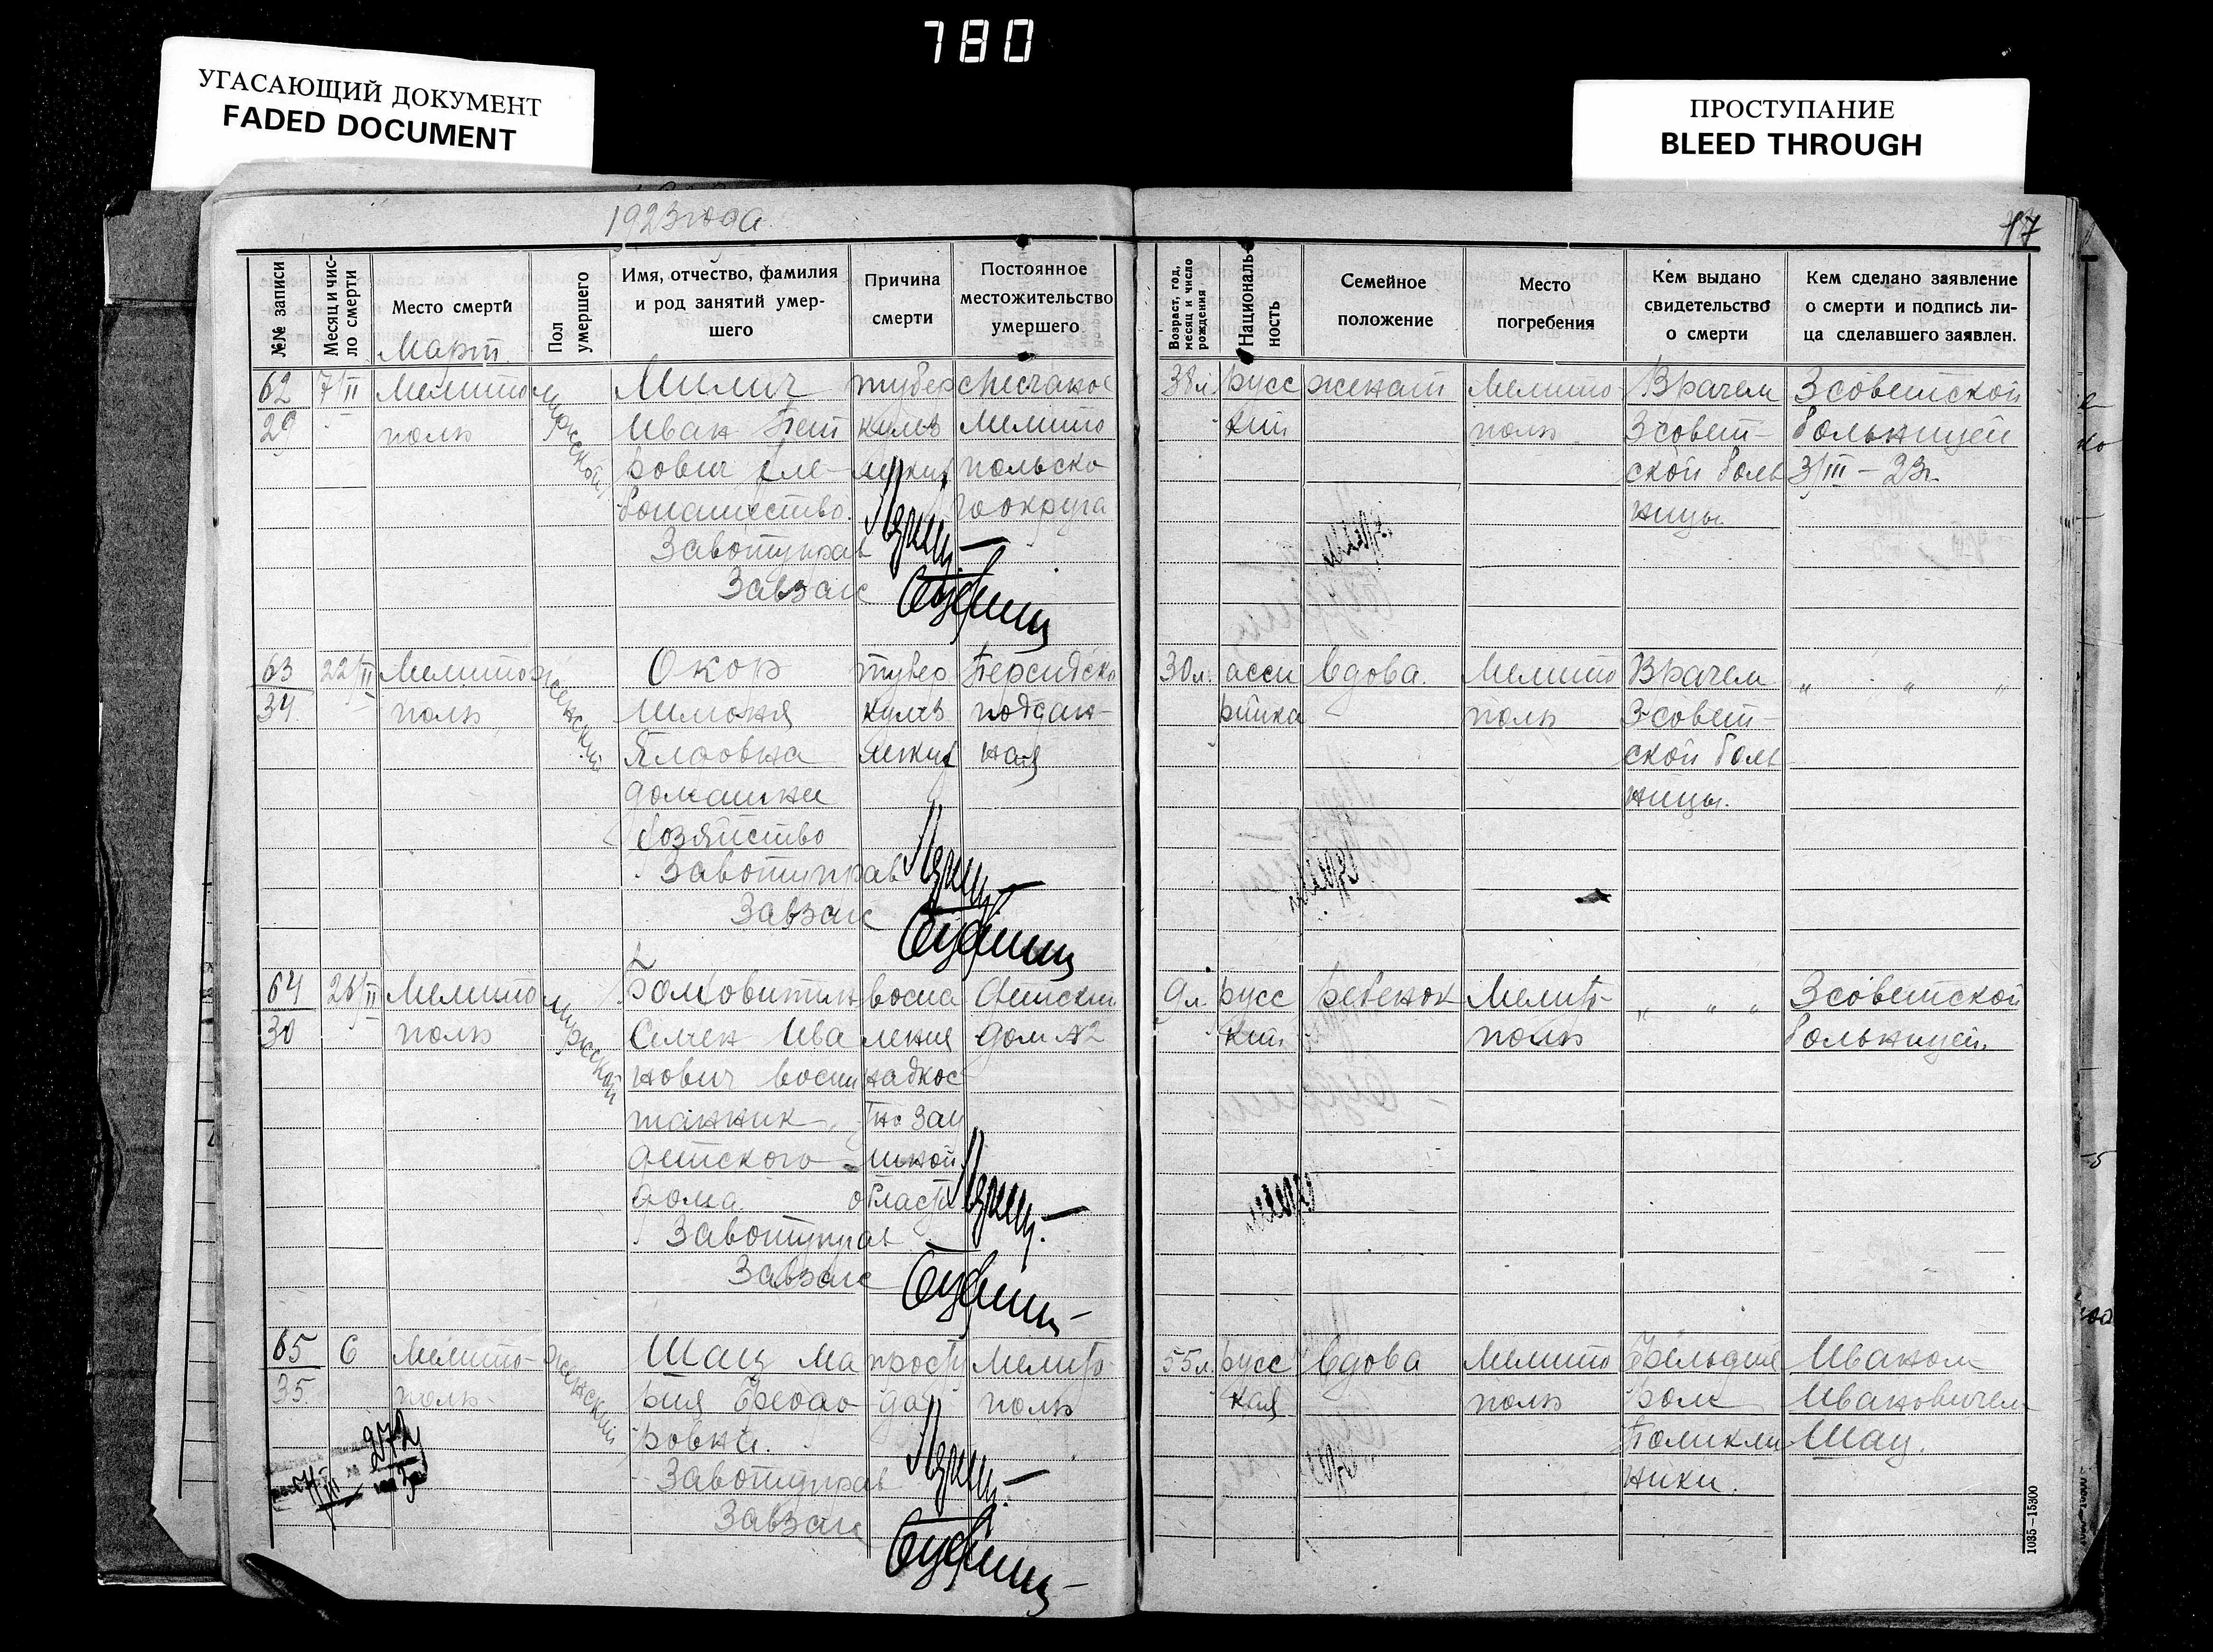 780
УГАСАЮЩИЙ ДОКУМЕНТ
FADED DOCUMENT
ПРОСТУПАНИЕ
BLEED THROUGH
1923 года
17
№№ записи
Месяц и чис-
ло смерти
Место смерти
Март
Пол
умершего
Имя, отчество, фамилия
и род занятий умер-
шего
Причина
смерти
Постоянное
местожительство
умершего
Возраст, год,
месяц и число
рождения
Националь-
ность
Семейное
положение
Место
погребения
Кем выдано
свидетельство
о смерти
Кем сделано заявление
о смерти и подпись ли-
ца сделавшего заявлен.
62
29
7/II
Мелито
поль
мужской
Милич
Иван Пет
рович хле-
бопашество.
тубер
кулез
легких
Мелито
польско
го округа
38 л.
русс
кий
женат
Мелито
поль
Врачем
3 совет-
ской боль
ницы
3 советской
больницей
3/III – 23 г.
Завотуправ
Завзагс
63
34
22/II
Мелито
поль
женский
Окор
Шмоня
домашнее
хозяйство
тубер
кулез
легких
Персидско
поддан-
ная
30 л.
асси
рийка
вдова.
Мелито
поль
Врачем
3 совет-
ской боль
ницы.
" " "
Завотуправ
Завзагс
64
30
26/II
Мелито
поль
мужской
Семен Ива
нович воспи
танник
детского
дома
воспа
ления
надкос
области
Детский
дом №2
9 л.
русс
кий
ребенок
Мелито-
поль
" " "
3 советской
больницей.
Завотуправ
Завзагс
65
35
6
Мелито-
поль
женский
Шац Ма
рия Федо
ровна.
просту
да
Мелито
поль
55 л.
русс
кая
вдова
Мелито
поль
Фельдше
ром
Поликли
ники.
Иваном
Ивановичем
Шац.
Завотуправ
Завзагс
272
1035—15300